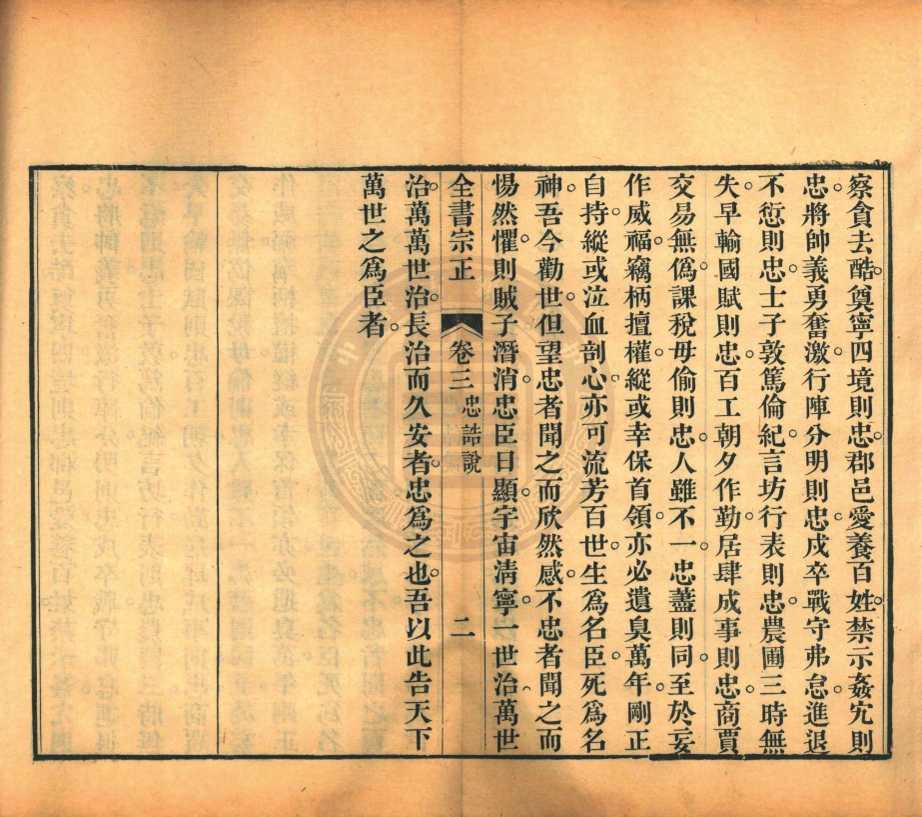 察貪去酷。奠寧四境則忠。郡邑愛養百姓。禁示姦宄則
忠。將帥義勇奮激。行陣分明則忠。戍卒戰守弗怠。進退
不愆則忠。士子敦篤倫紀。言坊行表則忠。農圃三時無
失。早輸國賦則忠。百工朝夕作勤。居肆成事則忠。商賈
交易無僞。課稅毋偷則忠。人雖不一。忠藎則同。至於妄
作威福。竊柄擅權。縱或幸保首領。亦必遺臭萬年。剛正
自持。縱或泣血剖心。亦可流芳百世。生爲名臣。死爲名
神。吾今勸世。但望忠者聞之而欣然感。不忠者聞之而
惕然懼。則賊子潛消。忠臣日顯。宇宙清寧。世治萬世
全書宗正 卷三 忠誥說 二
治。萬萬世治。長治而久安者。忠爲之也。吾以此告天下
萬世之爲臣者